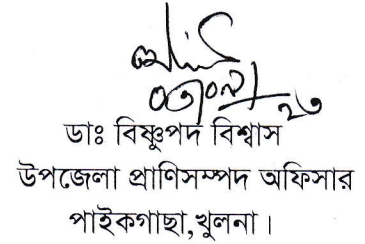 ডাঃ বিষ্ণুপদ বিশ্বাস
উপজেলা প্রাণিসম্পদ অফিসার
পাইকগাছা,খুলনা।